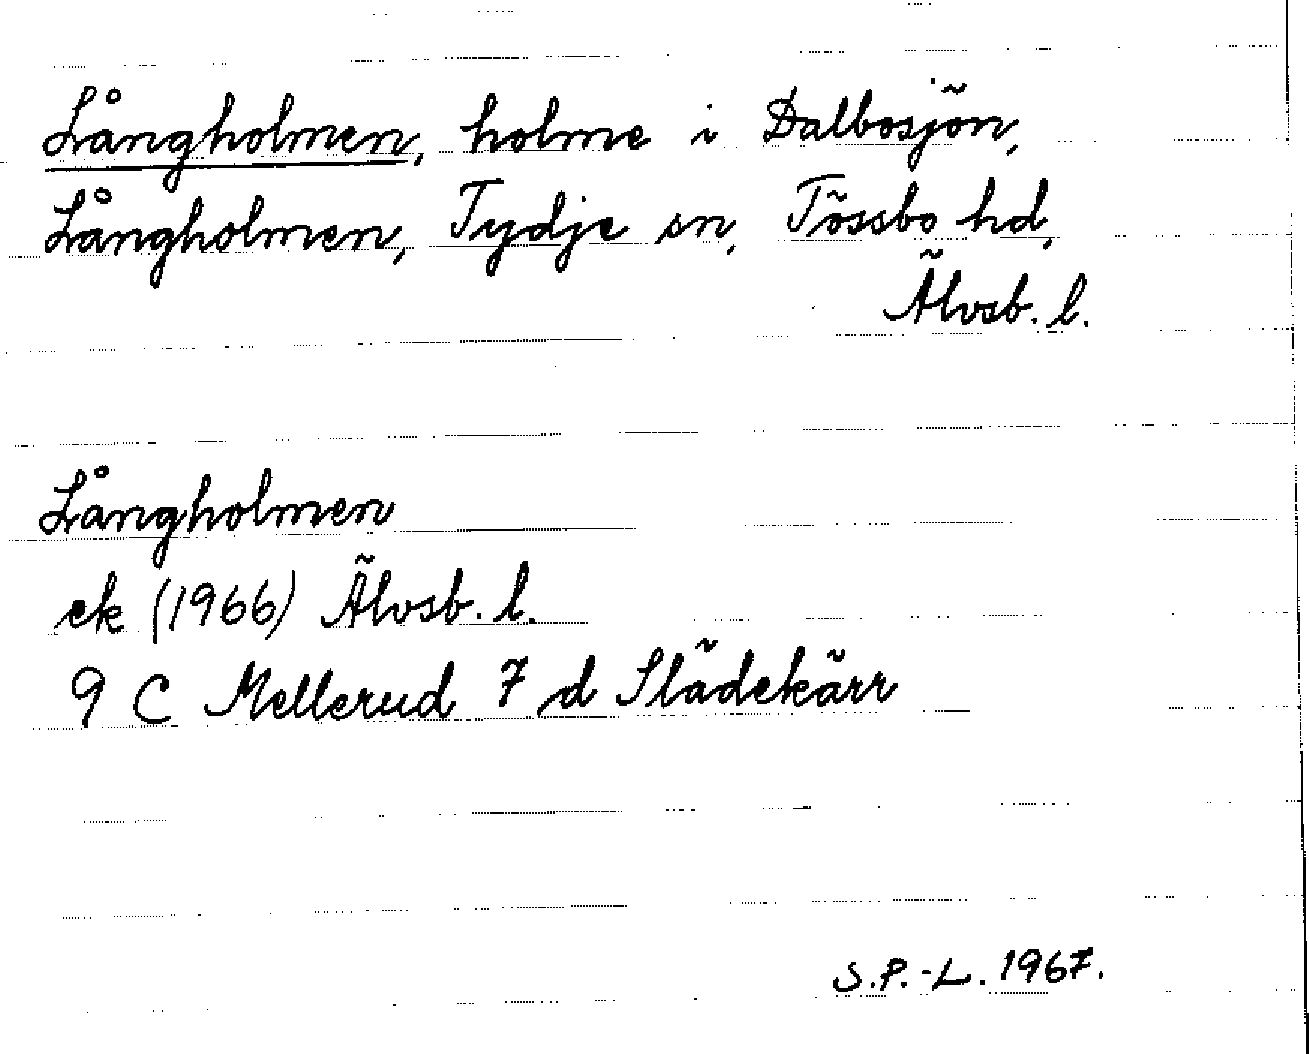 Långholmen, holme i Dalbosjön,
Långholmen, Tydje sn, Tössbo hd,
Älvsb. l.
Långholmen
ek (1966) Älvsb. l.
9 C Mellerud 7 d Slädekärr
S.P.-L. 1967.